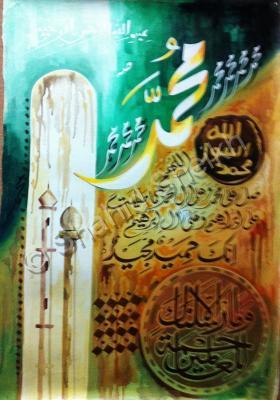 بسم الله الرحمن الرحيم
محمد
محمد محمد محمد محمد
محمد محمد محمد
الله
رسول
محمد
اللهم
صل على محمد وعلى آل محمد كما صليت
على إبراهيم وعلى آل إبراهيم
إنك حميد مجيد
وما أرسلناك
إلا رحمة
للعالمين